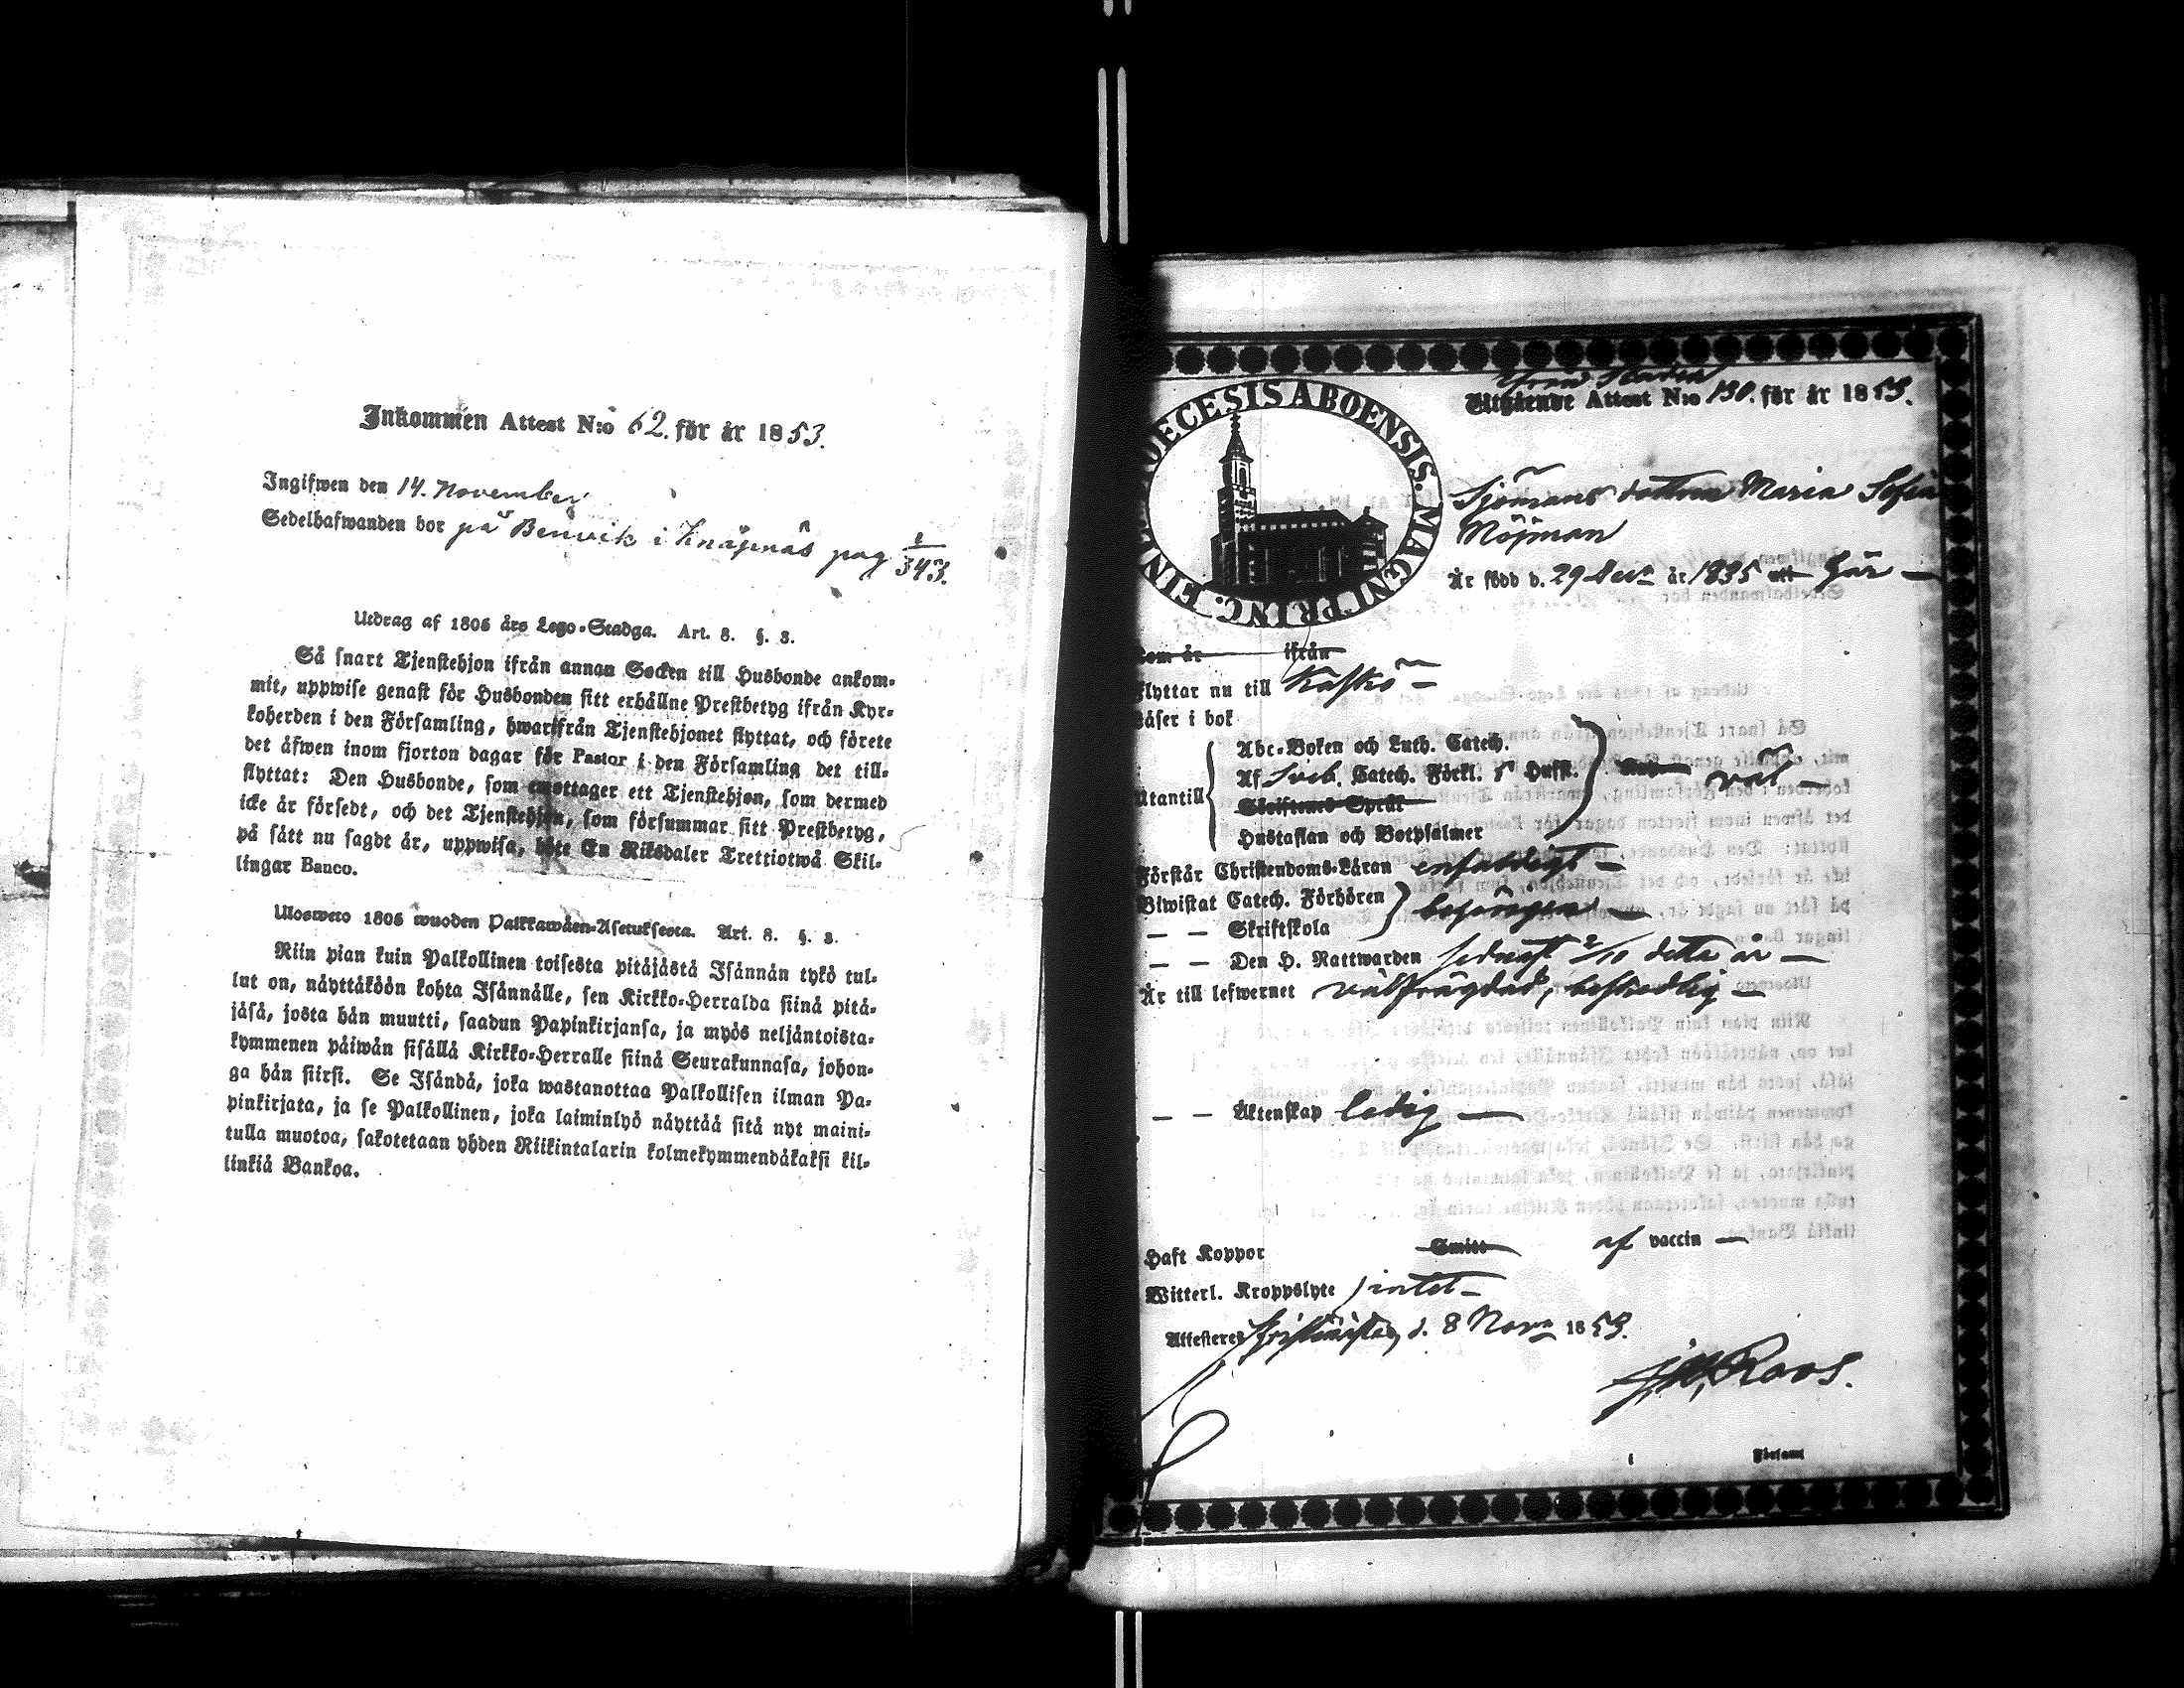 Inkommen Attest N:o 62. för år 1853.
Ingifwen den 14. November
Sedelhafwanden bor på Benvik i Knåpnäs pag 1/343.
Utdrag af 1805 års Lego-Stadga. Art. 8. §. 3.
Så snart Tjenstehjon ifrån annan Socken till Husbonde ankom-
mit, uppwise genast för Husbonden sitt erhållne Prestbetyg ifrån Kyr-
koherden i den Församling, hwarifrån Tjenstehjonet flyttat, och förete
det äfwen inom fjorton dagar för Pastor i den Församling det till-
flyttat: Den Husbonde, som emottager ett Tjenstehjon, som dermed
icke är försedt, och det Tjenstehjon, som försummar sitt Prestbetyg,
på sätt nu sagdt är, uppwisa, böte En Riksdaler Trettiotwå Skil-
lingar Banco.
Ulosweto 1805 wuoden Palkkawäen-Asetuksesta. Art. 8. §. 3.
Niin pian kuin Palkollinen toisesta pitäjästä Isännän tykö tul-
lut on, näyttäköön kohta Isännälle, sen Kirkko-Herralda siinä pitä-
jäsä, josta hän muutti, saadun Papinkirjansa, ja myös neljäntoista-
kymmenen päiwän sisällä Kirkko-Herralle siinä Seurakunnasa, johon-
ga hän siirsi. Se Isändä, joka wastanottaa Palkollisen ilman Pa-
pinkirjata, ja se Palkollinen, joka laiminlyö näyttää sitä nyt maini-
tulla muotoa, sakotetaan yhden Riikintalarin kolmekymmendäkaksi kil-
linkiä Bankoa.
från Staden
Utgående Attest N:o 190. för år 1853.
DECESIS ABOENSIS. MAGNI PRINC. FIN
Sjömans dottren Maria Sofia
Nöjman
Är född d. 29 Decr år 1835 uti här
Som är ifrån
Flyttar nu till Kaskö
Läser i bok
Abc-Boken och Luth. Catech.
Utantill Af Sveb. Catech. Förkl. Husfl. väl
Skriftens Språk
Hustaflan och Botpsalmer
Förstår Christendoms-Läran enfaldigt
Biwistat Catech. Förhören behörigen
— — Skriftskola
— — Den H. Nattwarden sednast 2/10 detta år
Är till lefwernet välfrägdad, beskedlig
— — Äktenskap ledig
Haft Koppor Smitt af vaccin
Witterl. Kroppslyte intet
Attesteres Christinestad, d. 8 Novr 1853.
Roos.
Församl